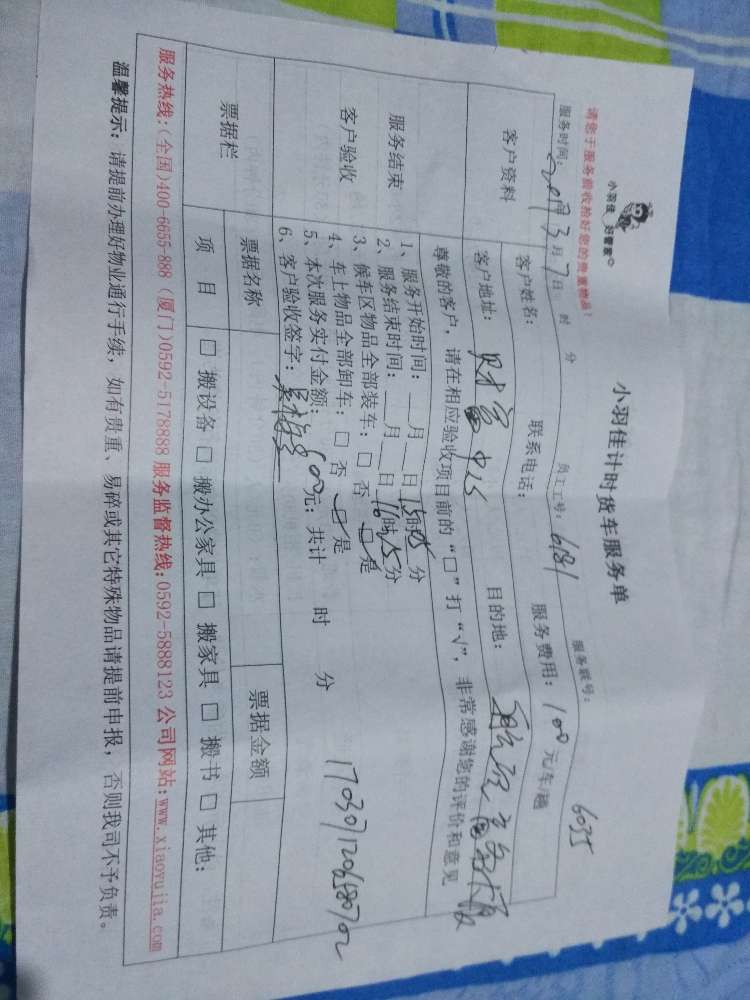 请您于服务前收检好您的贵重物品！
小羽佳 好管家
小羽佳计时货车服务单
服务联号： 6035
服务时间：2017年3月7日 时 分 员工工号：6181
客户资料
客户姓名： 联系电话： 服务费用：100元车/趟
客户地址：财富中心 目的地：
尊敬的客户，请在相应验收项目前的“□”打“√”，非常感谢您的评价和意见
服务结束
客户验收
1、服务开始时间：__月__日15时05分
2、服务结束时间：__月__日16时15分
3、候车区物品全部装车：□ 否 ☑ 是
4、车上物品全部卸车：□ 否 ☑ 是
5、本次服务实付金额：800元；共计 时 分
6、客户验收签字：
票据栏
票据名称 票据金额
项 目 □ 搬设备 □ 搬办公家具 □ 搬家具 □ 搬书 □ 其他：
服务热线：(全国)400-6655-888 (厦门)0592-5178888 服务监督热线：0592-5888123 公司网站：www.xiaoyujia.com
温馨提示：请提前办理好物业通行手续，如有贵重、易碎或其它特殊物品请提前申报，否则我司不予负责。